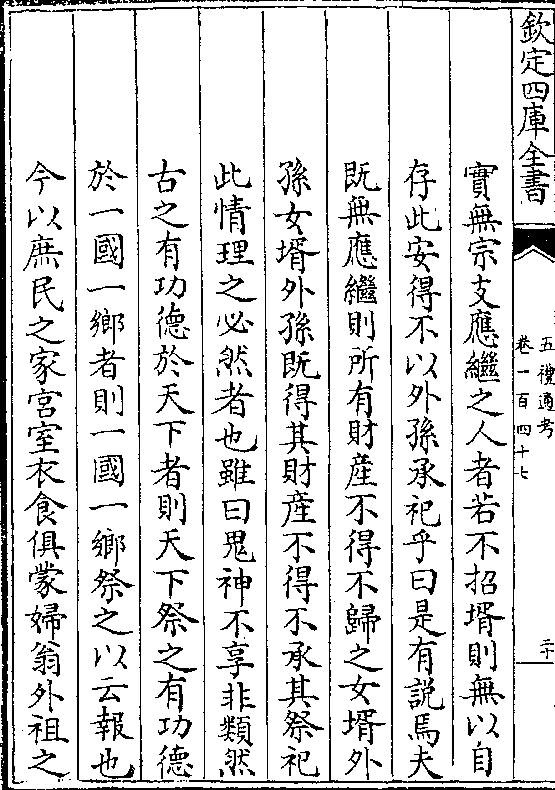 欽定四庫全書
五禮通考
卷一百四十七
二十
實無宗支應繼之人者若不招壻則無以自
存此安得不以外孫承祀乎曰是有説焉夫
既無應繼則所有財産不得不歸之女壻外
孫女壻外孫既得其財産不得不承其祭祀
此情理之必然者也雖曰鬼神不享非類然
古之有功德於天下者則天下祭之有功德
於一國一鄉者則一國一鄉祭之以云報也
今以庶民之家宫室衣食俱蒙婦翁外祖之